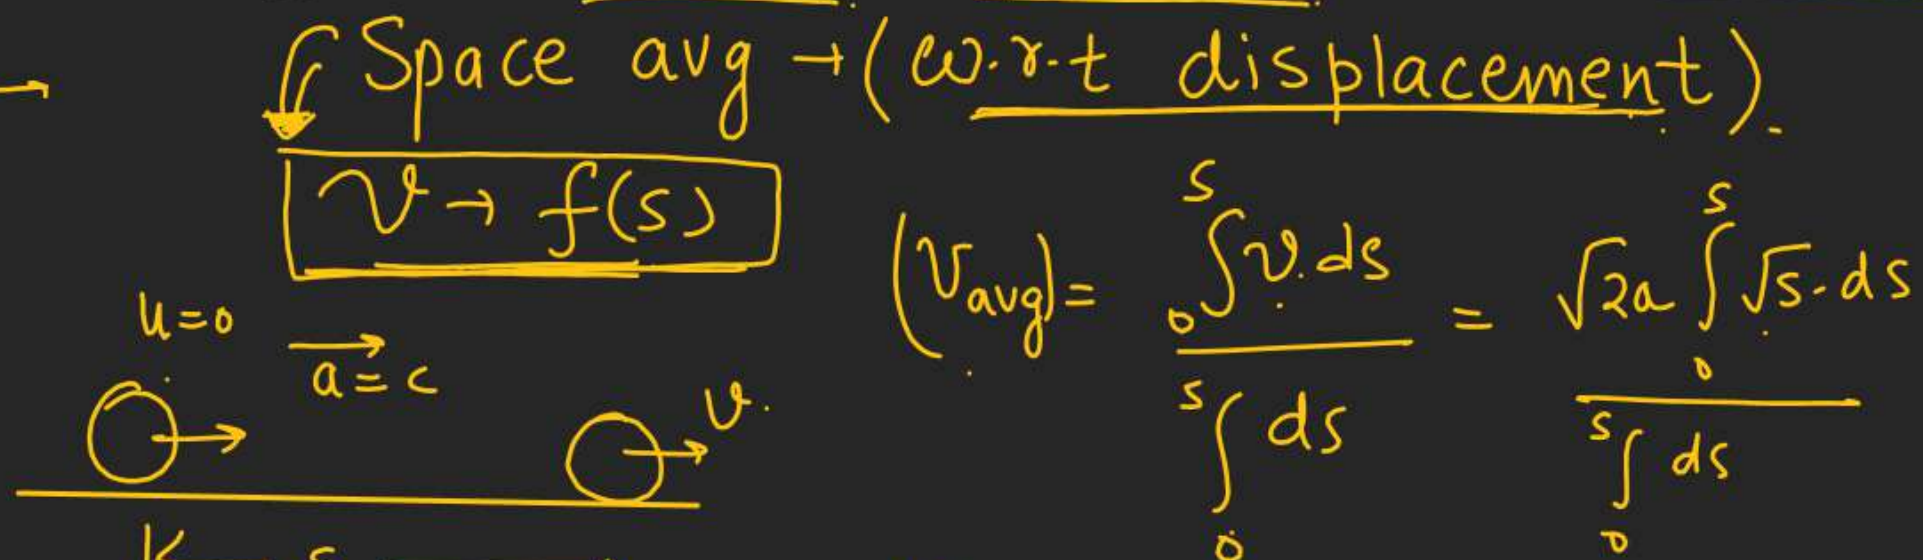 → Space avg → (w.r.t displacement).
v → f(s)
(v_avg) = ∫₀ˢ v.ds / ∫₀ˢ ds = √2a ∫₀ˢ √s.ds / ∫₀ˢ ds
u=0
a = c
v.